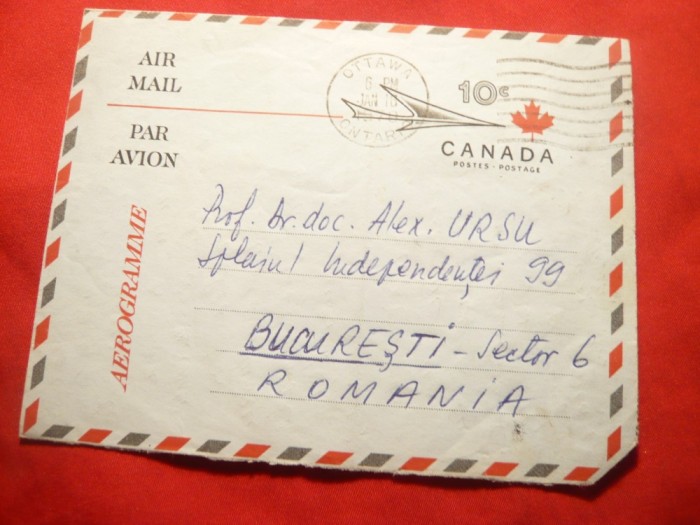 AIR
MAIL
PAR
AVION
AEROGRAMME
OTTAWA
6 PM
JAN
ONTARIO
10c
CANADA
POSTES - POSTAGE
Prof. Dr. doc. Alex. URSU
Splaiul Independenței 99
BUCUREȘTI - Sector 6
ROMANIA